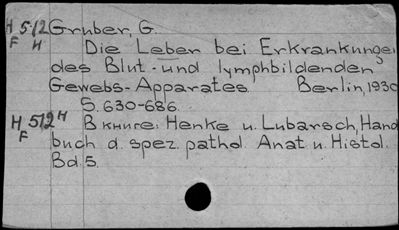 H 512 Gruber, G.
F H Die Leber bei Erkrankungen
des Blut- und lymphbildenden
Gewebs-Apparates Berlin, 1930
S. 630-686.
H 512 H В книге: Henke u. Lubarsch, Hand
F buch d. spez. pathol. Anat u. Histol.
Bd. 5.